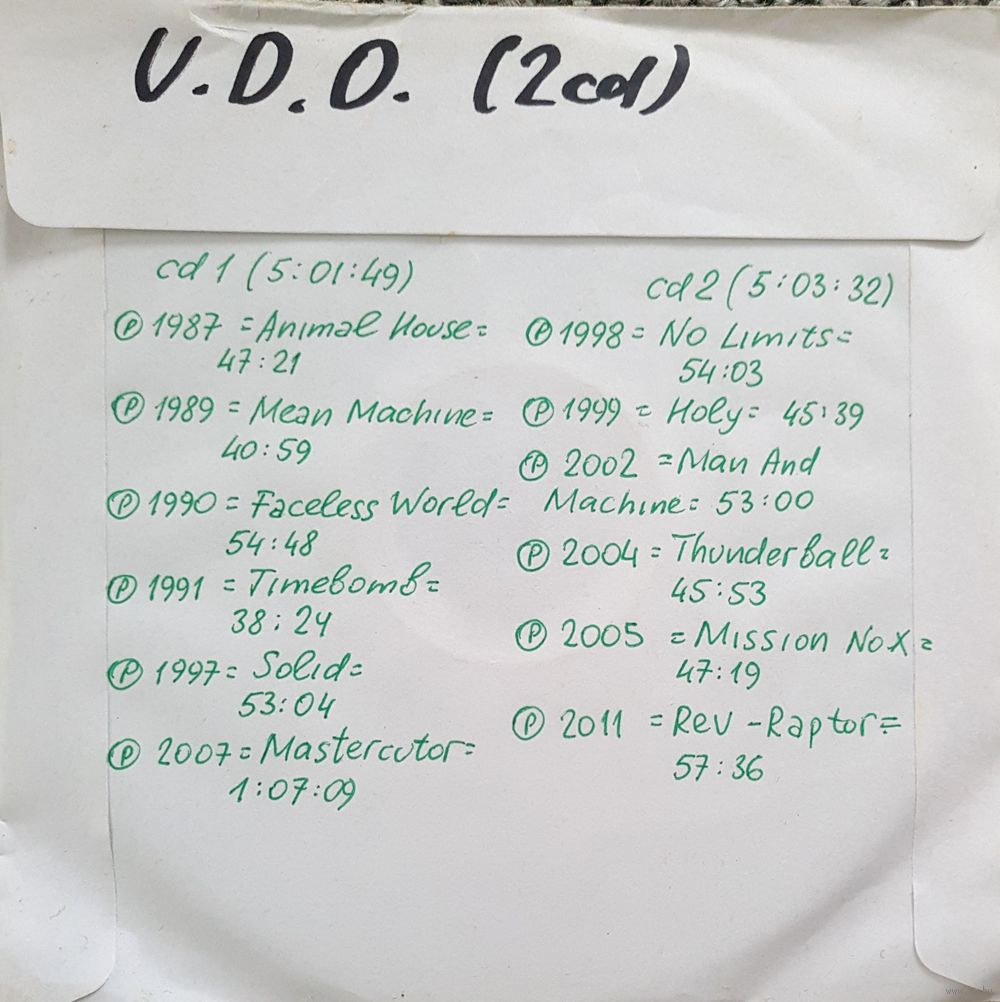 U.D.O. (2cd)
cd 1 (5:01:49)
Ⓟ 1987 = Animal House =
47:21
Ⓟ 1989 = Mean Machine =
40:59
Ⓟ 1990 = Faceless World =
54:48
Ⓟ 1991 = Timebomb =
38:24
Ⓟ 1997 = Solid =
53:04
Ⓟ 2007 = Mastercutor =
1:07:09
cd 2 (5:03:32)
Ⓟ 1998 = No Limits =
54:03
Ⓟ 1999 = Holy = 45:39
Ⓟ 2002 = Man And
Machine = 53:00
Ⓟ 2004 = Thunderball =
45:53
Ⓟ 2005 = Mission No X =
47:19
Ⓟ 2011 = Rev - Raptor =
57:36